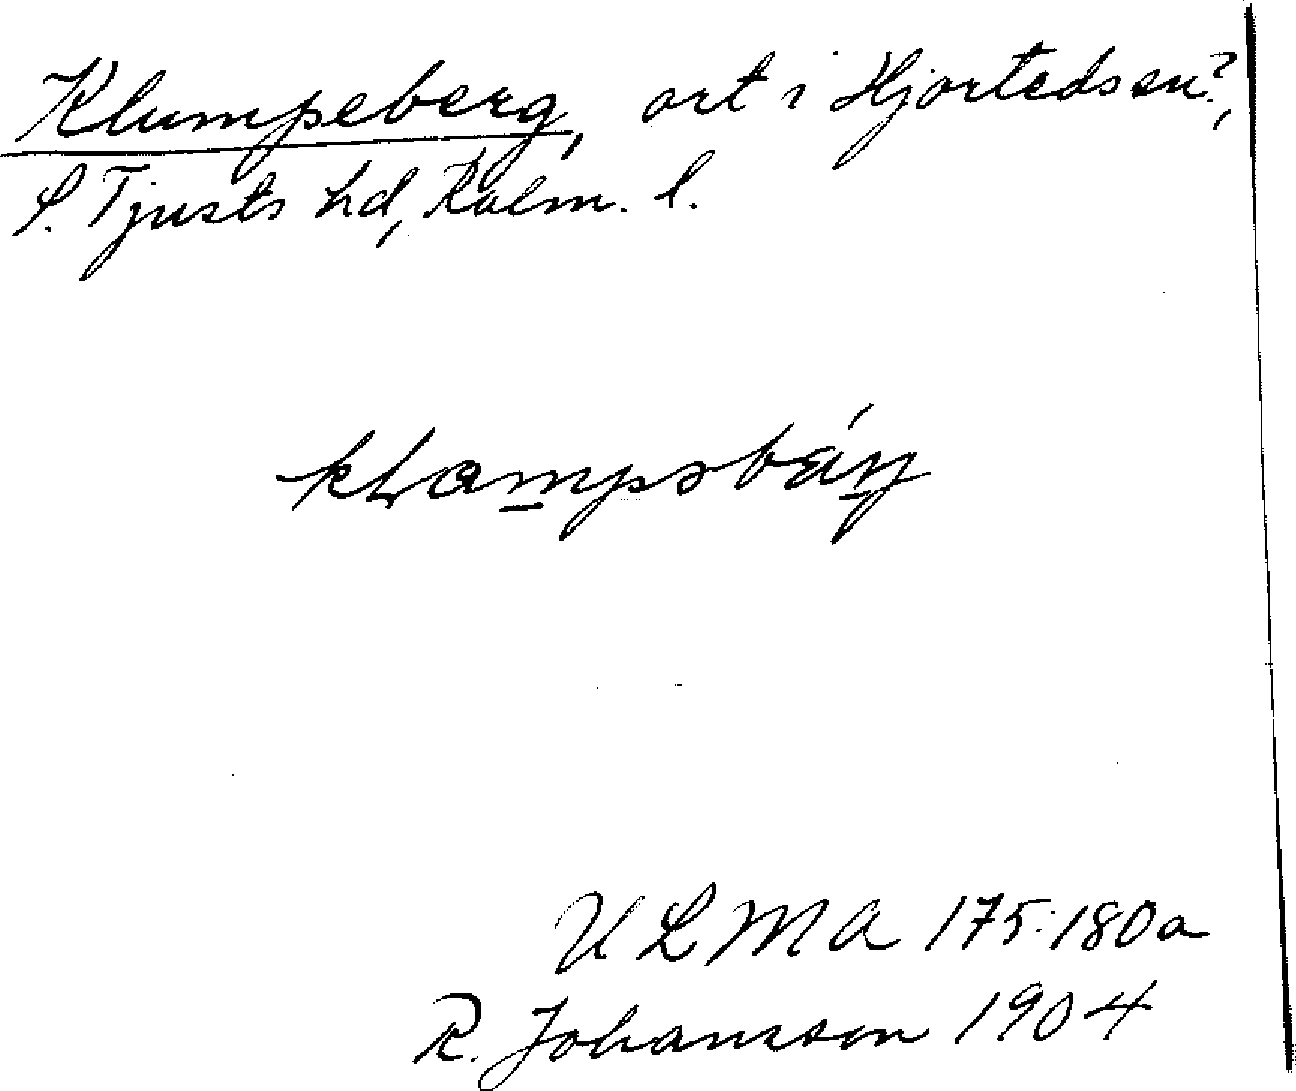 Klumpeberg, ort i Hjorteds sn?,
S. Tjusts hd, Kalm. l.
ULMA 175:180a
R. Johansson 1904